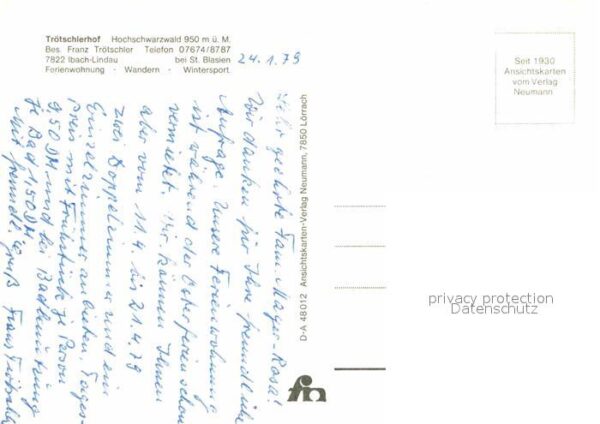 Trötschlerhof Hochschwarzwald 950 m ü. M.
Bes. Franz Trötschler Telefon 07674/8787
7822 Ibach-Lindau bei St. Blasien
Ferienwohnung · Wandern · Wintersport
24.1.79
Sehr geehrte Fam. Mayer-Rosa!
Wir danken für Ihre freundliche
Anfrage. Unsere Ferienwohnung
ist während der Osterferien schon
vermietet. Wir können Ihnen
aber vom 11.4. bis 21.4.79
zwei Doppelzimmer und ein
Einzelzimmer anbieten. Tages-
preis mit Frühstück je Person
9,50 DM und bei Badbenützung
je Bad 1,50 DM
Mit freundl. Gruß Franz Trötschler
D-A 48012 Ansichtskarten-Verlag Neumann, 7850 Lörrach
Seit 1930
Ansichtskarten
vom Verlag
Neumann
privacy protection
Datenschutz